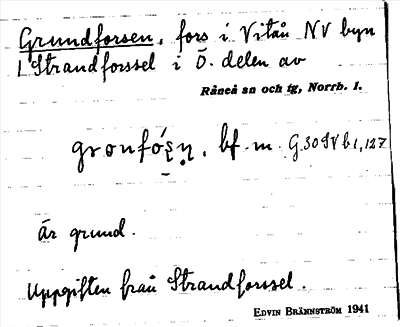 Grundforsen, fors i Vitån NV byn
1 Strandforssel i Ö. delen av
Råneå sn och tg, Norrb. l.
bf. m. G.30 IV b 1, 127
Är grund.
Uppgiften från Strandforssel.
EDVIN BRÄNNSTRÖM 1941